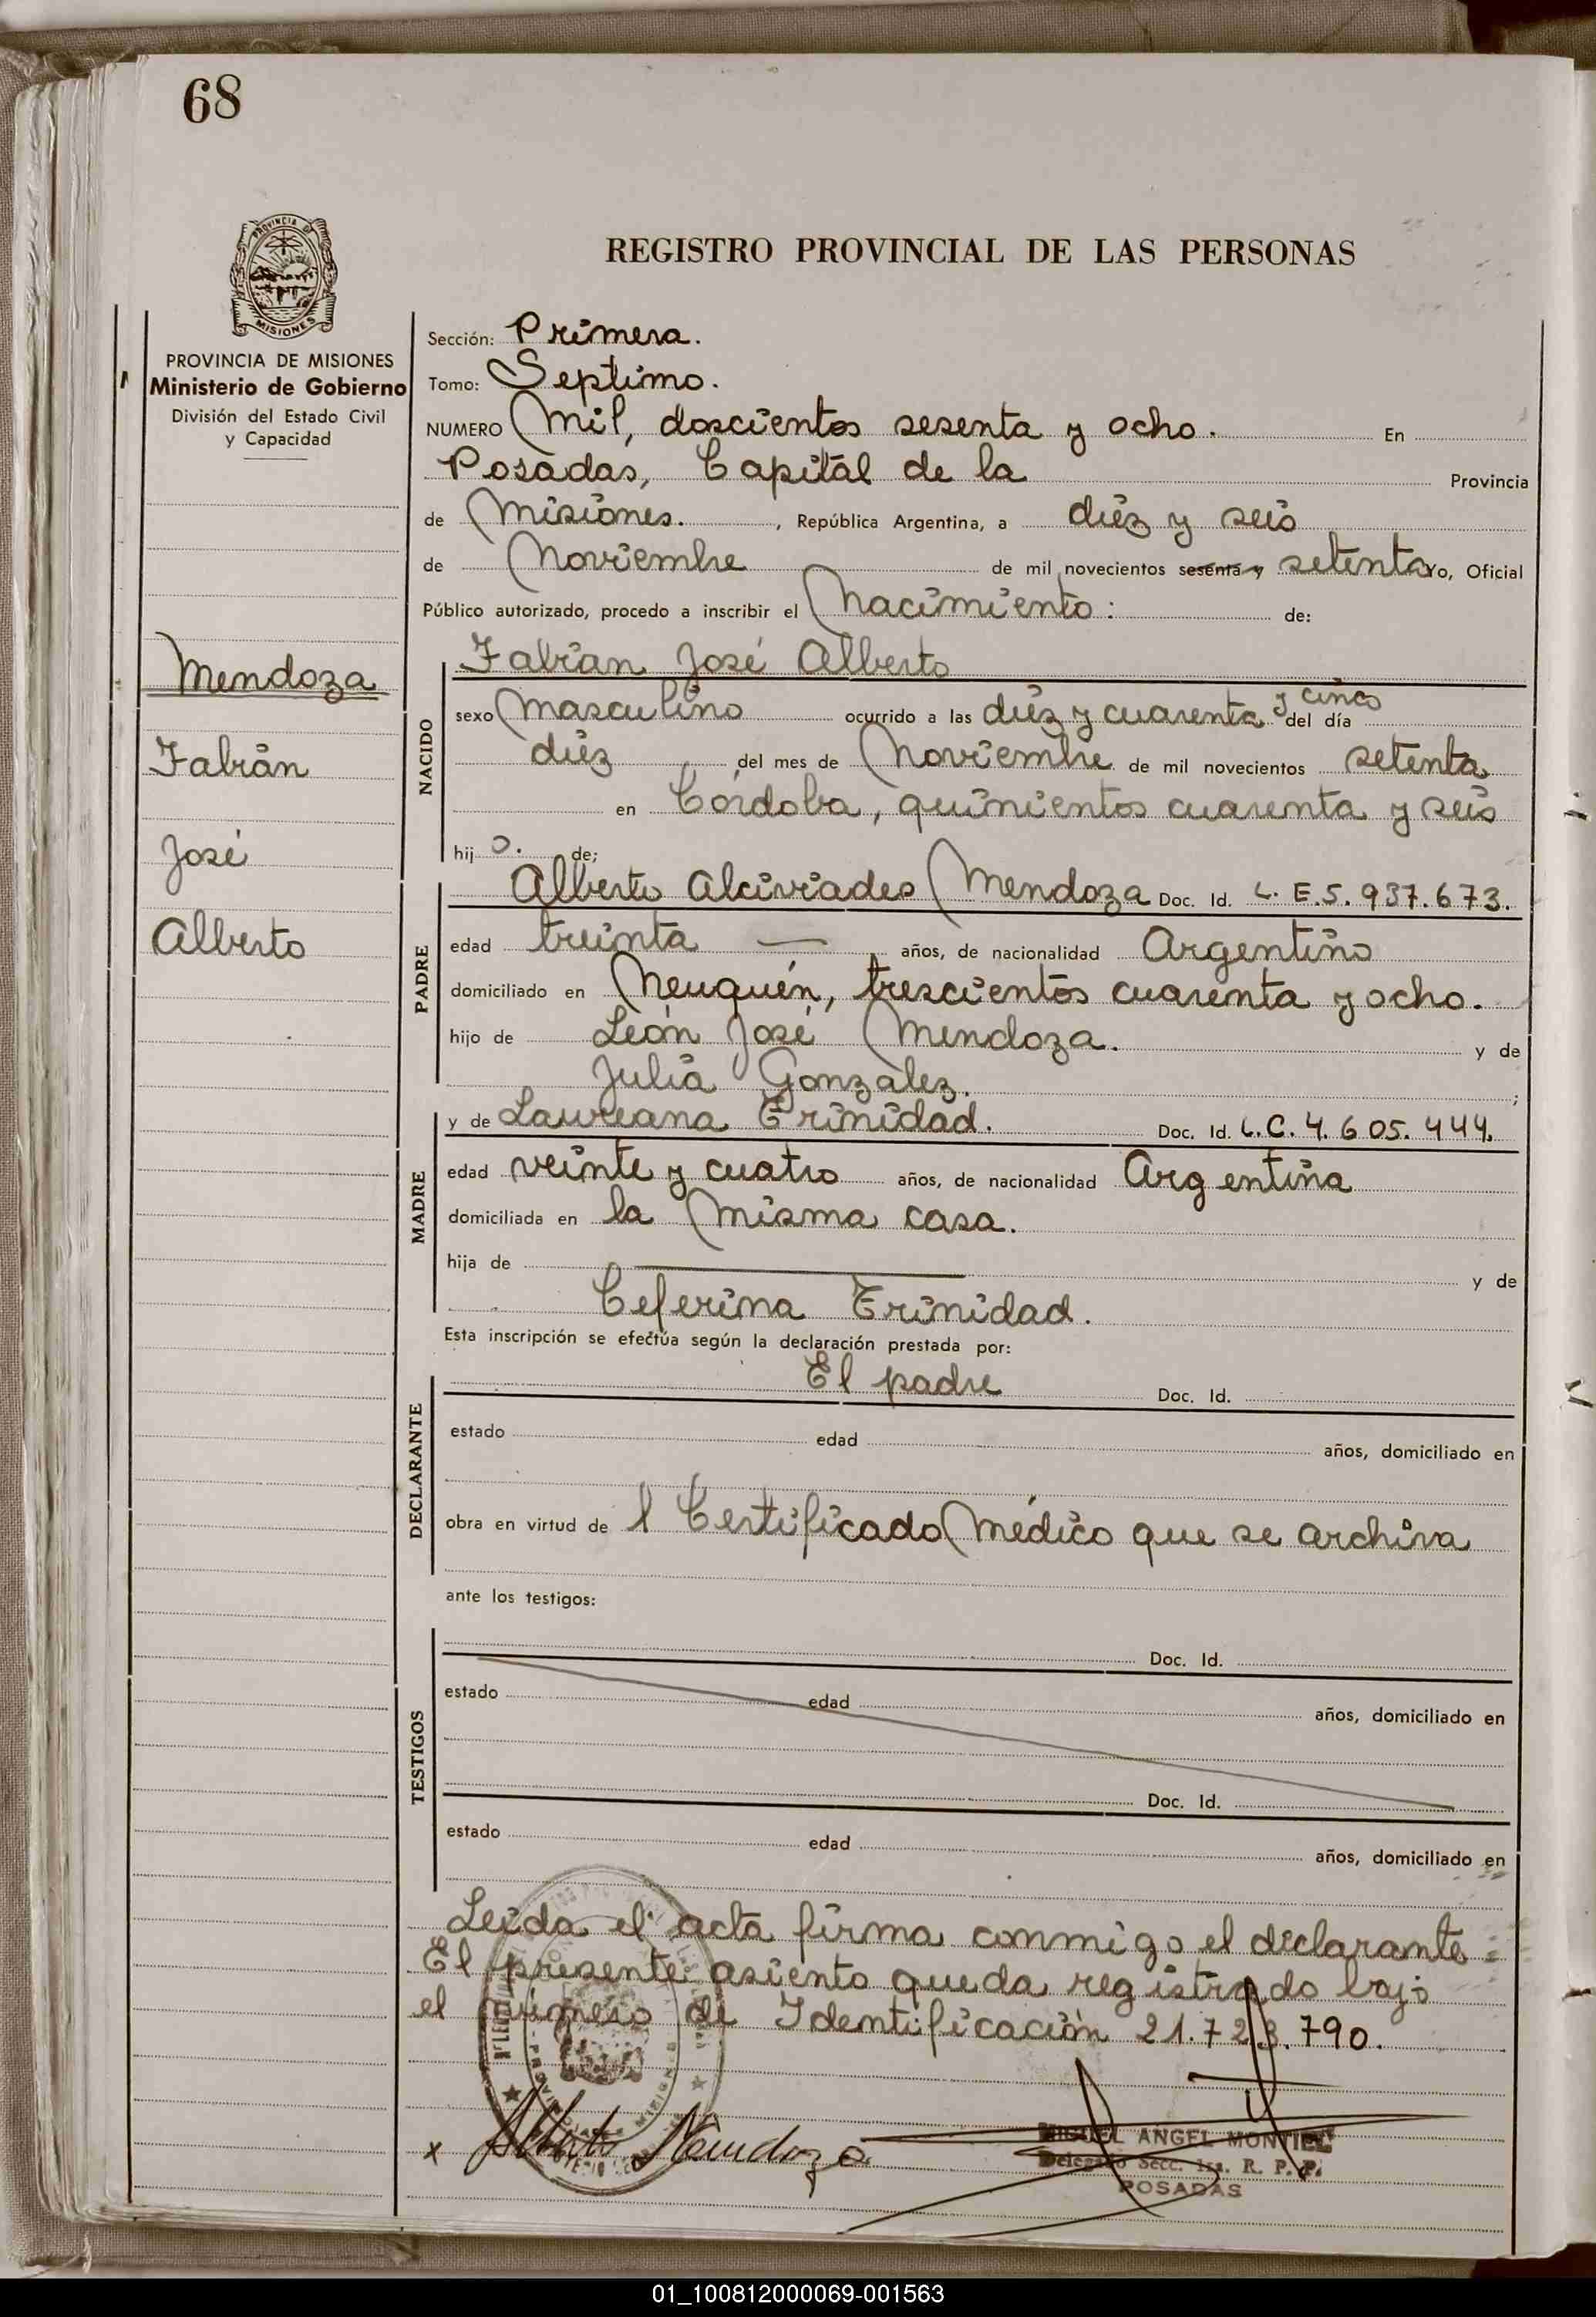 68
PROVINCIA DE
MISIONES
REGISTRO PROVINCIAL DE LAS PERSONAS
PROVINCIA DE MISIONES
Ministerio de Gobierno
División del Estado Civil
y Capacidad
Mendoza
Fabián
José
Alberto
Sección: Primera.
Tomo: Septimo.
NUMERO Mil, doscientos sesenta y ocho. En
Posadas, Capital de la Provincia
de Misiones. , República Argentina, a diéz y seis
de Noviembre de mil novecientos sesenta y setenta Yo, Oficial
Público autorizado, procedo a inscribir el Nacimiento: de:
NACIDO
Fabian José Alberto
sexo Masculino ocurrido a las diéz y cuarenta y cinco del día
diéz del mes de Noviembre de mil novecientos setenta
en Córdoba, quinientos cuarenta y seis
hij o. de;
PADRE
Alberto Alcivíades Mendoza Doc. Id. L. E. 5. 937. 673.
edad treinta — años, de nacionalidad Argentino
domiciliado en Neuquén, trescientos cuarenta y ocho.
hijo de León José Mendoza. y de
Julia González. ;
MADRE
y de Laureana Trinidad. Doc. Id. L. C. 4. 605. 444.
edad veinte y cuatro años, de nacionalidad Argentina
domiciliada en la misma casa.
hija de y de
Ceferina Trinidad.
Esta inscripción se efectúa según la declaración prestada por:
DECLARANTE
El padre Doc. Id.
estado edad años, domiciliado en
obra en virtud de l Certificado Médico que se archiva
ante los testigos:
TESTIGOS
Doc. Id.
estado edad años, domiciliado en
Doc. Id.
estado edad años, domiciliado en
Leida el acta firma conmigo el declarante
El presente asiento queda registrado bajo
el número de Identificación 21. 723. 790.
x Alberto Mendoza
MIGUEL ANGEL MONTIEL
Delegado Secc. 1ra. R. P. P.
POSADAS
01_100812000069-001563